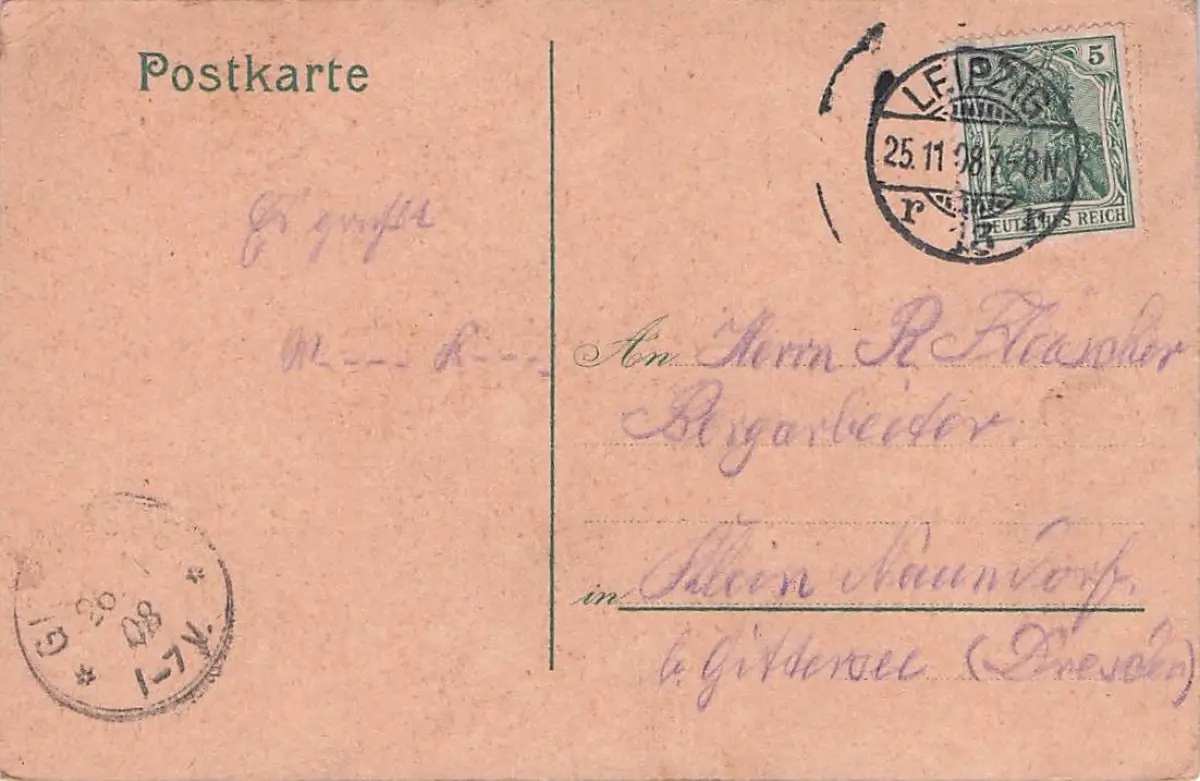 Postkarte
5
LEIPZIG
25.11.08 7-8 N.
r 13 r
DEUTSCHES REICH
Es grüßt
M.---- K.----
An Herrn R Fleischer
Bergarbeiter.
in Klein Naundorf.
b. Gittersee (Dresden)
GI
26
08
1-7 V.